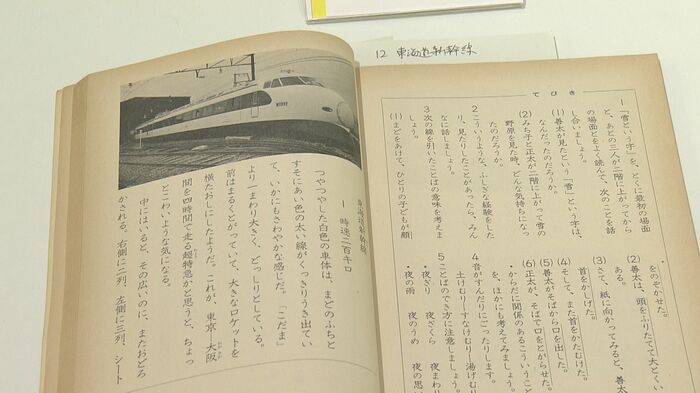 12 東海道新幹線
てびき
1 「雪という字」を、とくに最初の場面
と、あとの三人が二階に上がってから
の場面とをよく読んで、次のことを話
し合いましょう。
(1) 善太が見たという「雪」という字は、
なんだったのだろうか。
(2) みち子と正太が二階に上がって雪の
野原を見た時、どんな気持ちになっ
たのだろうか。
2 こういうような、ふしぎな経験をした
り、見たりしたことがあったら、みん
なに話しましょう。
3 次の線を引いたことばの意味を考えま
しょう。
(1) まどをあけて、ひとりの子どもが顔
をのぞかせた。
(2) 善太は、頭をふりたてて大とくい
ある。
(3) さて、紙に向かってみると、善太
首をかしげた。
(4) そして、また首をかたむけた。
(5) 善太がそばから口を出した。
(6) 正太が、そばで口をとがらせた。
・からだに関係のあるこういうこと
を、ほかにも考えてみましょう。
4 音がすんだりにごったりします。
土けむり―すなけむり 湯げむり
5 ことばのでき方に注意しましょう。
・夜ぎり 夜ざくら 夜まわり
・夜の雨 夜のうめ 夜の思い
東海道新幹線
1 時速二百キロ
つやつやした白色の車体は、まどのふちと
すそにあい色の太い線がくっきりうき出てい
て、いかにもさわやかな感じだ。「こだま」
より一まわり大きく、どっしりとしている。
前はまるくとがっていて、大きなロケットを
横だおしにしたようだ。これが、東京・大阪
間を四時間で走る超特急かと思うと、ちょっ
とこわいような気になる。
中にはいると、その広いのに、またおどろ
かされる。右側に二列、左側に三列、シート